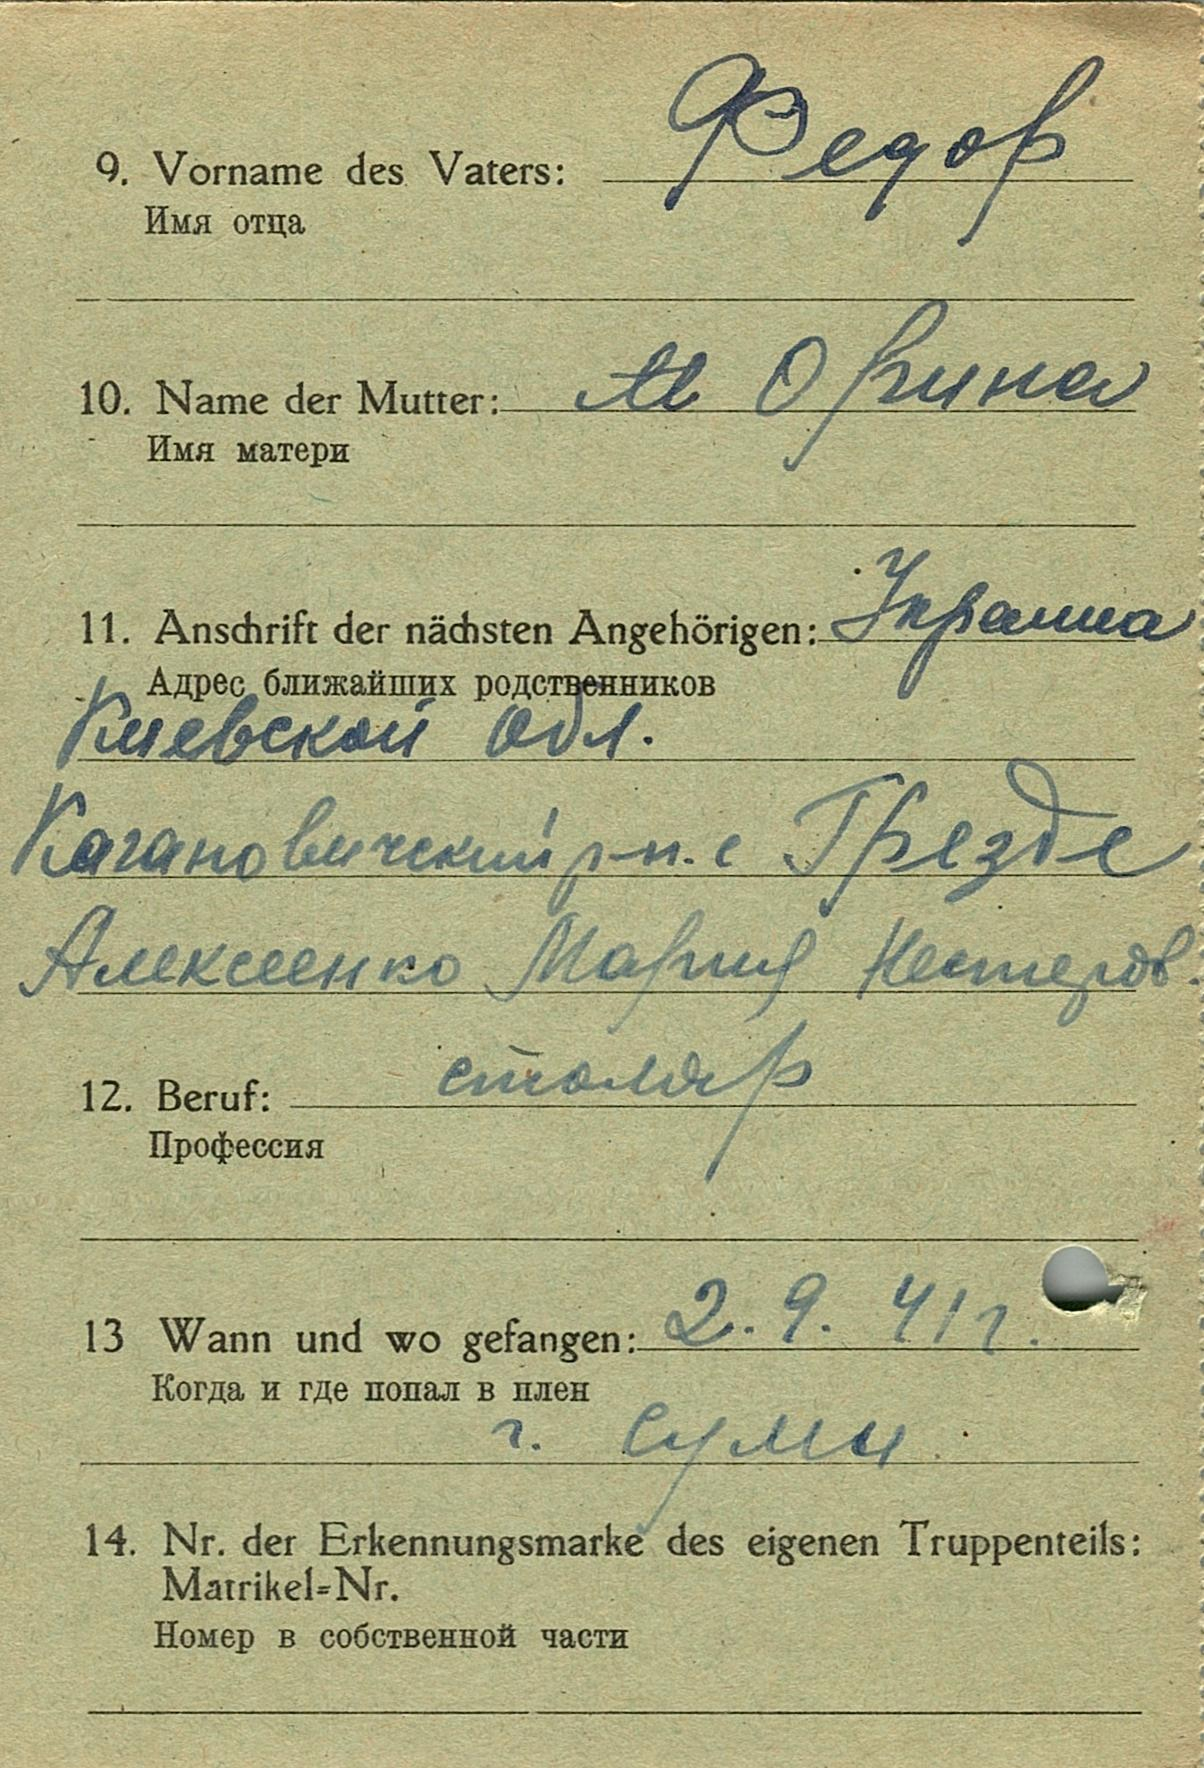 9. Vorname des Vaters: Федор
Имя отца
10. Name der Mutter: М Орина
Имя матери
11. Anschrift der nächsten Angehörigen: Украина
Адрес ближайших родственников
Киевской обл.
Кагановический р-н. с Грезде
Алексеенко Мария Нестеров.
12. Beruf: столяр
Профессия
13 Wann und wo gefangen: 2.9.41г.
Когда и где попал в плен
г. Сумы
14. Nr. der Erkennungsmarke des eigenen Truppenteils:
Matrikel=Nr.
Номер в собственной части